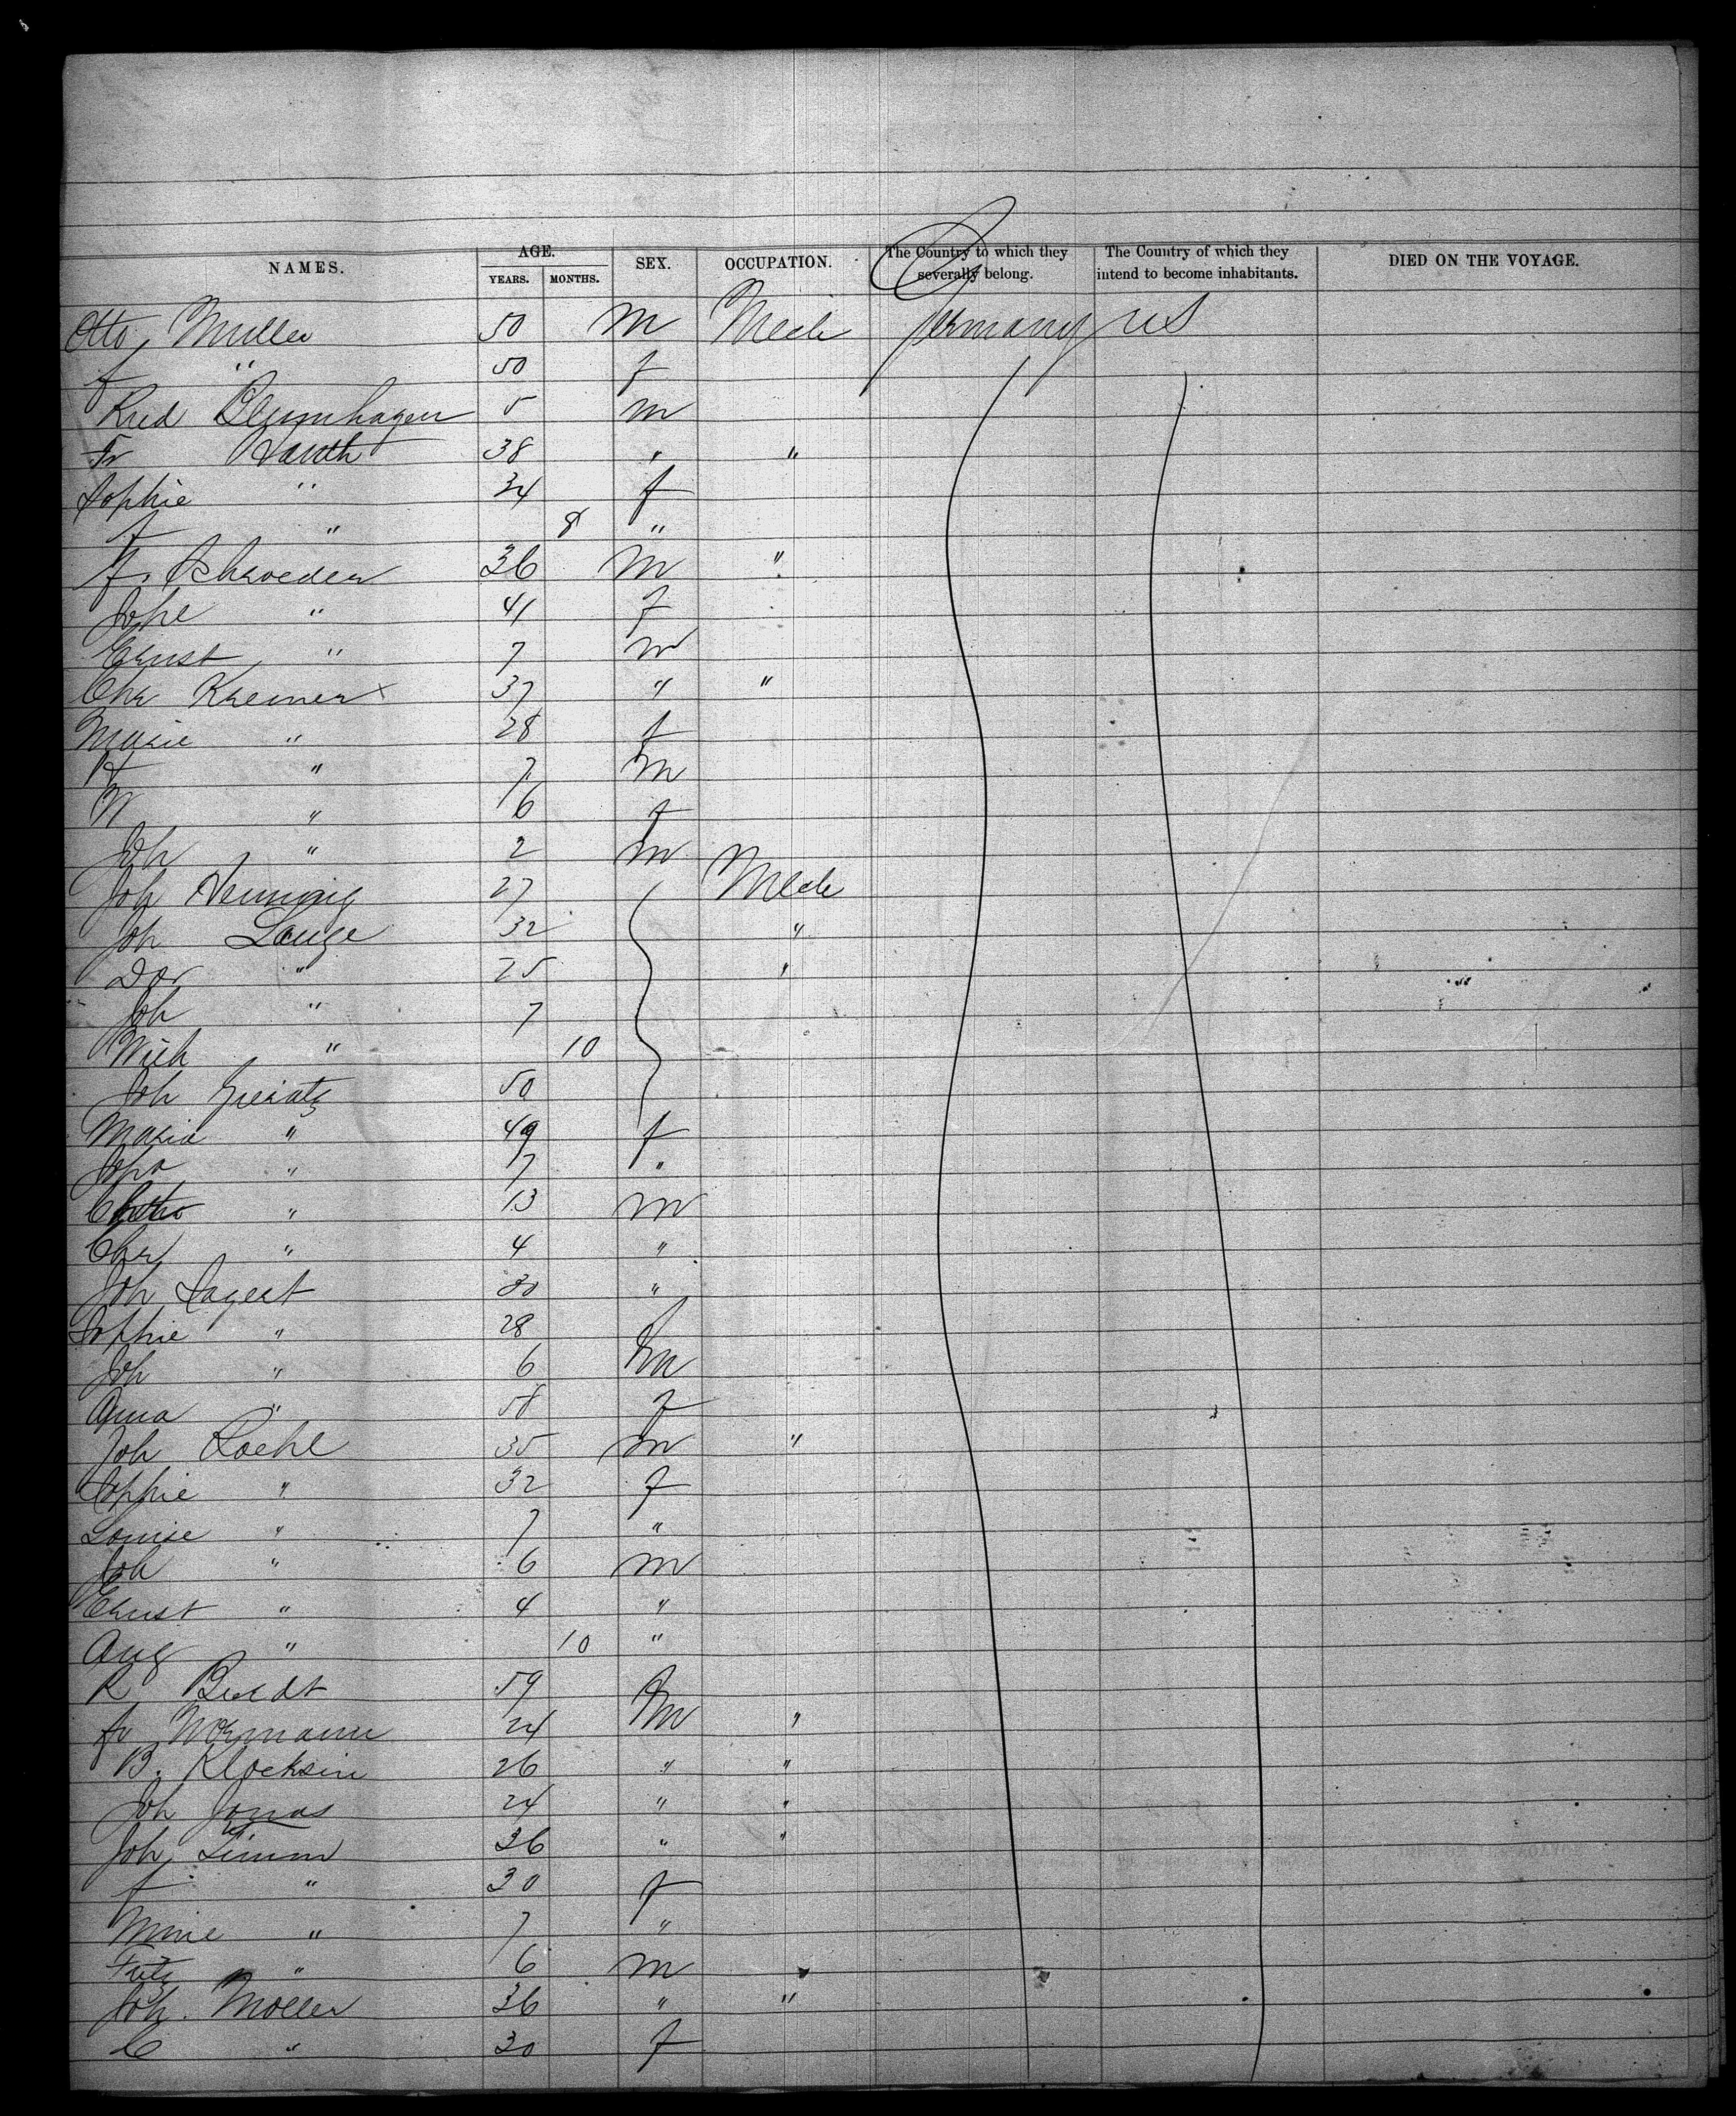 NAMES. AGE. YEARS. MONTHS. SEX. OCCUPATION. The Country to which they severally belong. The Country of which they intend to become inhabitants. DIED ON THE VOYAGE.
Otto Muller 50 m Mech Germany US
f " 50 f
Rud Blumhagen 5 m
Fr Vauth 38 " "
Sophie " 34 f
f " 8 "
F. Schroeder 36 m "
Sophe " 41 f
Ernst " 7 m
Chr Kremer x 37 " "
Marie " 28 f
H " 7 m
W " 6 f
Joh " 2 m
Joh Henning 27 Mech
Joh Lange 32 "
Dor " 25 "
Joh " 7
Wilh " 10
Joh 50
Maria " 49 f
" 7 "
" 13 m
Chr " 4 "
Joh Sagert 30 "
Sophie " 28 f
Joh " 6 m
Anna " 58 f
Joh Roehl 35 m "
Sophie " 32 f
Louise " 7 "
Joh " 6 m
Ernst " 4 "
Aug " 10 "
R 59 f
Fr Wormann 24 m "
B. Klocksin 26 " "
Joh Jonas 24 " "
Joh Timm 36 " "
f " 30 f
Mine " 7 "
Fritz " 6 m
Joh. Moller 36 " "
C " 30 f